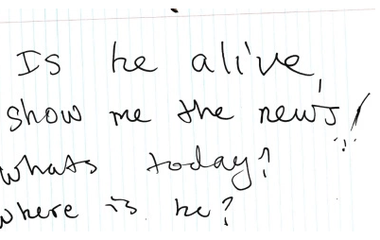 Is he alive,
show me the news!
whats today?
where is he?